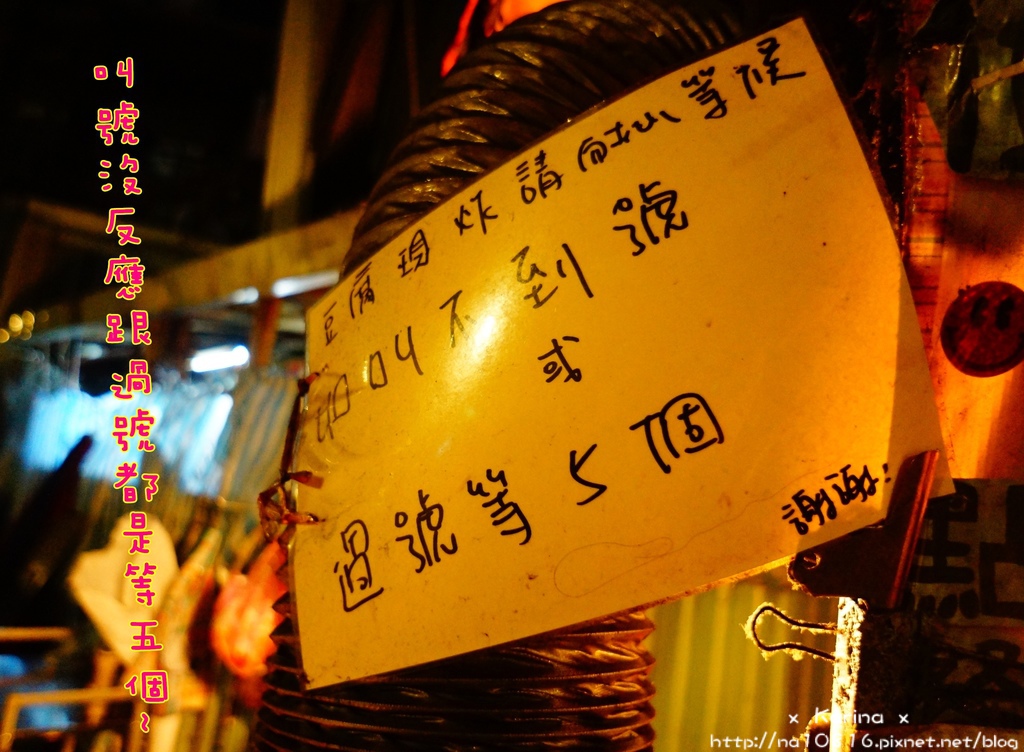 叫號沒反應跟過號都是等五個~
豆腐現炸請耐心等候
如叫不到號
或
過號等5個
謝謝!
x Karina x
http://na10116.pixnet.net/blog